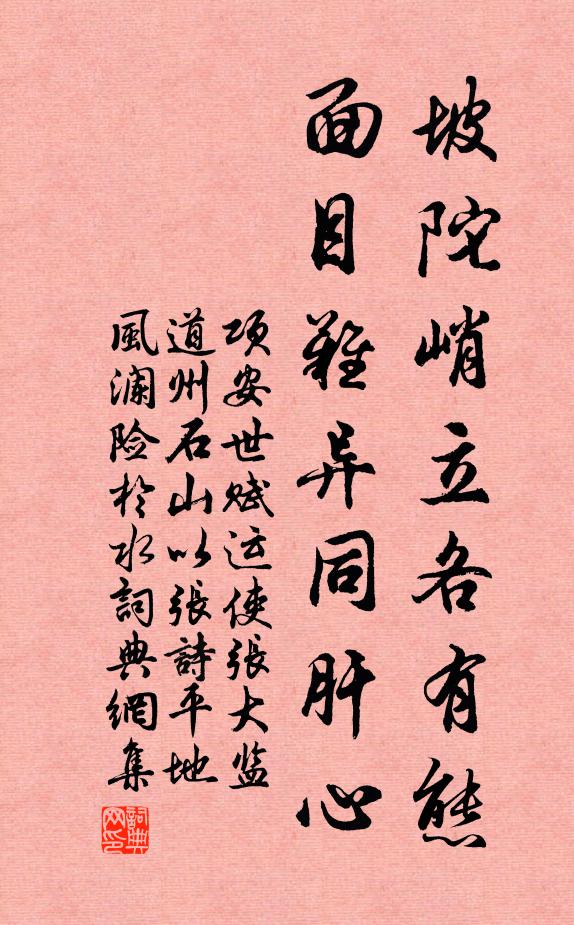 坡陀峭立各有態
面目難异同肝心
项安世赋运使張大监
道州石山以張詩平地
風澜险於水詞典網集
詞典网印